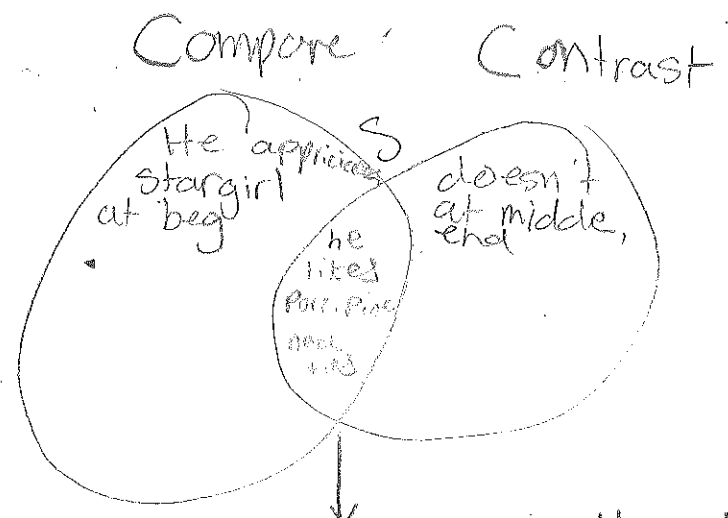 Compare Contrast
S
He appricices
stargirl
at beg
doesn't
at midde,
end
he
likes
Porc.pine
neck
ties